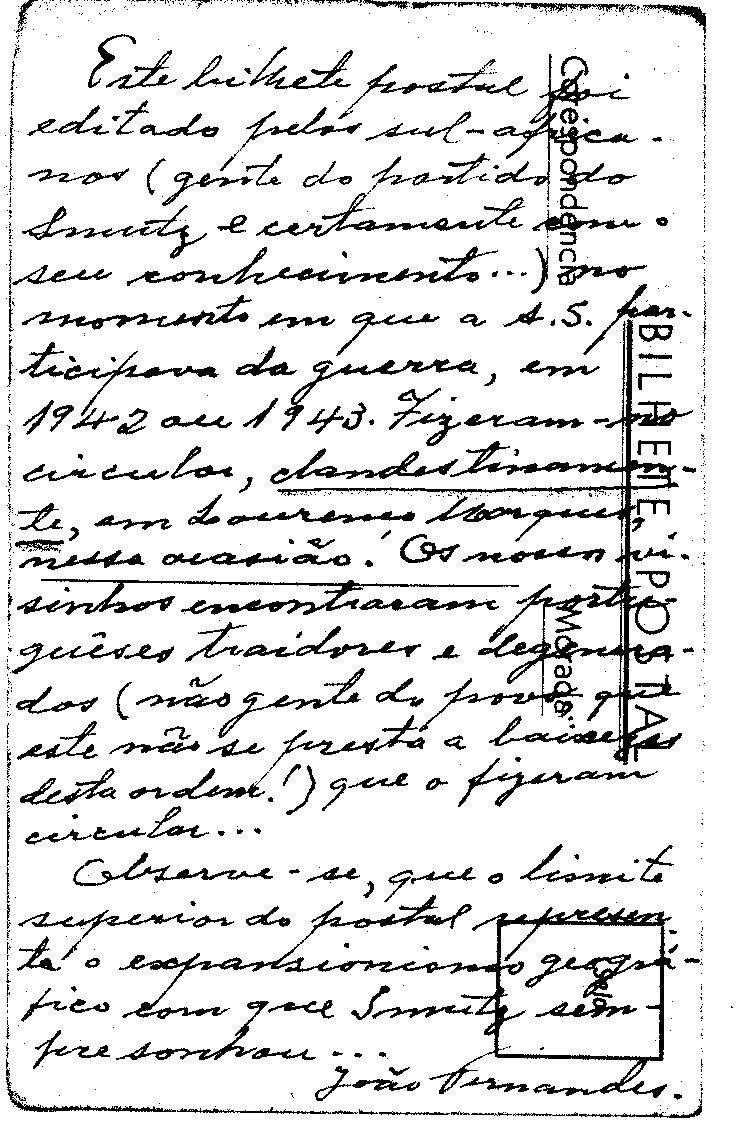 Este bilhete postal foi
editado pelos sul-africa-
nos (gente do partido do
Smutz e certamente com o
seu conhecimento...) no
momento em que a A.S. par-
ticipava da guerra, em
1942 ou 1943. Fizeram-no
circular, clandestinamen-
te, em Lourenço Marques,
nessa ocasião! Os nossos vi-
sinhos encontraram portu-
guêses traidores e degenera-
dos (não gente do povo, que
este não se presta a baixezas
desta ordem!) que o fizeram
circular...
Observe-se, que o limite
superior do postal represen-
ta o expansionismo geográ-
fico com que Smutz sem-
pre sonhou...
João Fernandes.
Correspondência
BILHETE POSTAL
Morada...
Selo